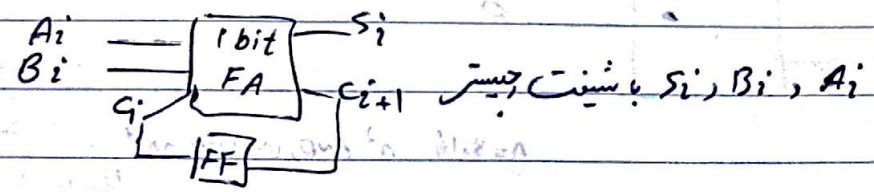 Ai
Bi
Ci
1 bit
FA
Si
Ci+1
FF
Ai , Bi , Si با شیفت رجیستر